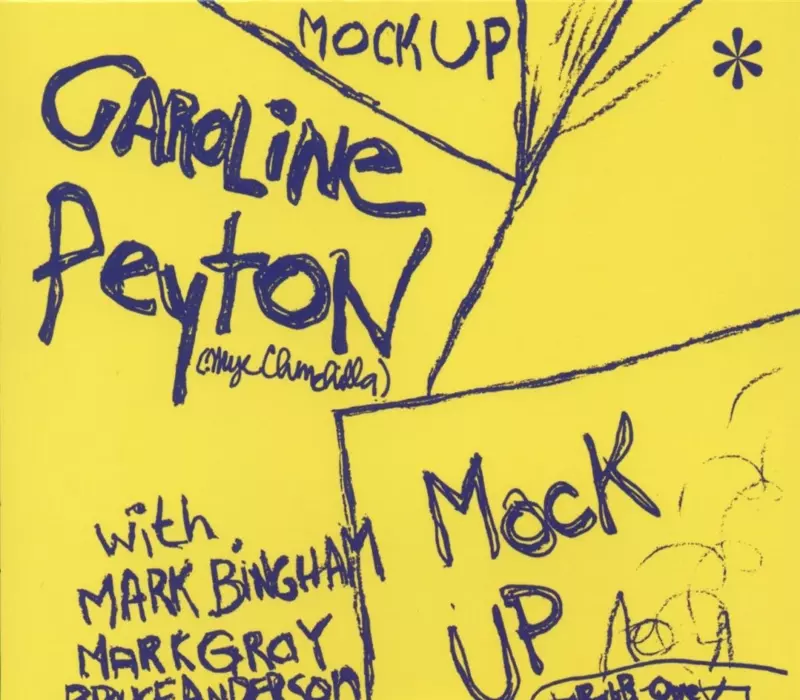 MOCKUP
*
CAROLINE
PEYTON
with
MARK BINGHAM
MARK GRAY
BRUCE ANDERSON
MOCK
UP